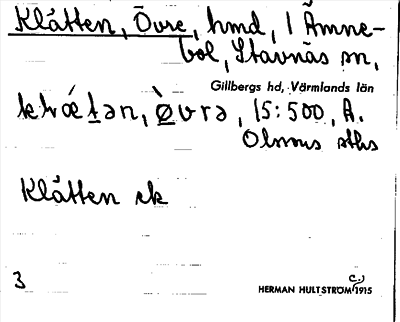 Klåtten, Övre, hmd, 1 Ämne-
bol, Stavnäs sn,
Gillbergs hd, Värmlands län
, 15:500, A.
Olssons sths
Klåtten ek
3
HERMAN HULTSTRÖM c.) 1915